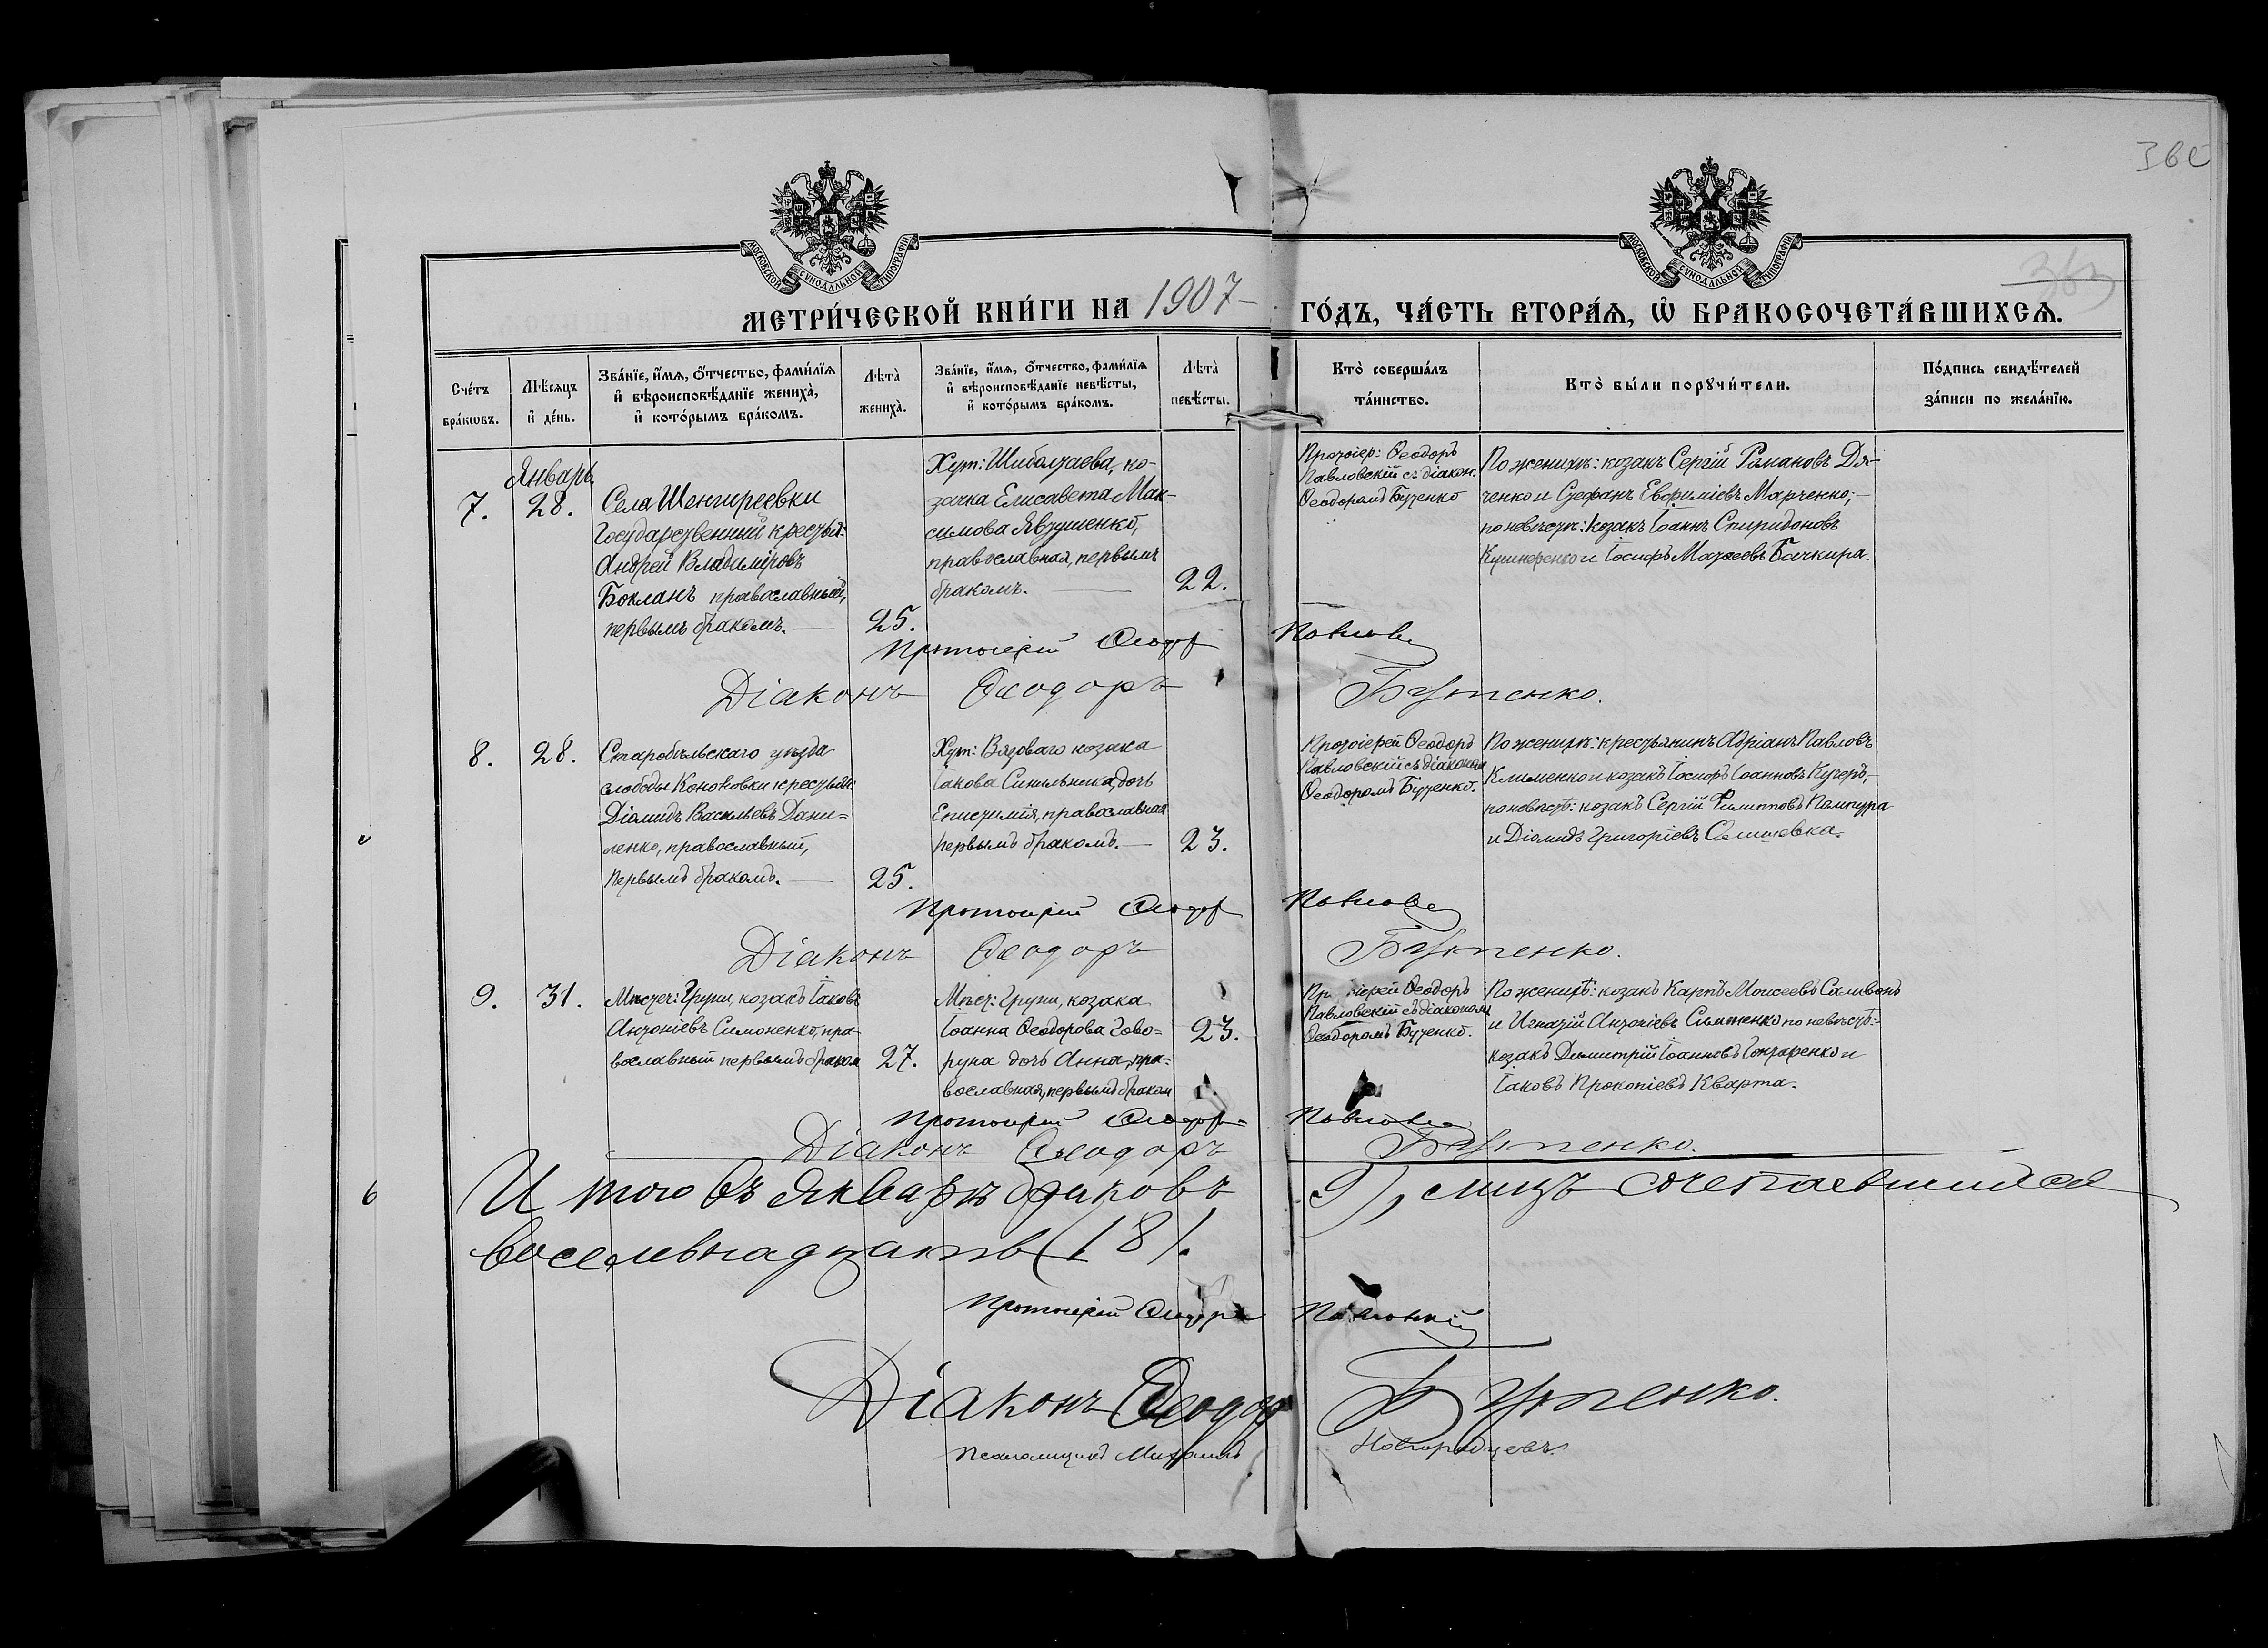 МОСКОВСКОЙ СѴНОДАЛЬНОЙ ТИПОГРАФІИ
МОСКОВСКОЙ СѴНОДАЛЬНОЙ ТИПОГРАФІИ
363
МЕТРИ́ЧЕСКОЙ КНИ́ГИ НА 1907 ГО́ДЪ, ЧА́СТЬ ВТОРА́Я, Ѡ БРАКОСОЧЕТА́ВШИХСЯ.
Сче́тъ
бра́кωвъ.
Мѣ́сяцъ
и҆ де́нь.
Зва́нїе, и҆́мя, ѻ҆́тчество, фами́лїя
и҆ вѣроисповѣ́данїе жениха̀,
и҆ кото́рымъ бра́комъ.
Лѣта̀
жениха̀.
Зва́нїе, и҆́мя, ѻ҆́тчество, фами́лїя
и҆ вѣроисповѣ́данїе невѣ́сты,
и҆ кото́рымъ бра́комъ.
Лѣта̀
невѣ́сты.
Кто̀ соверша́лъ
та́инство.
Кто̀ бы́ли порꙋчи́тели.
По́дпись свидѣ́телей
за́писи по жела́нїю.
Январь
7.
28.
Села Шенгиреевки
Государственный крестьян:
Андрей Владиміровъ
Бокланъ православный,
первымъ бракомъ.
25.
Хут: Шиболтаева, ко-
зачка Елисавета Мак-
симова Явтушенко,
православная, первымъ
бракомъ.
22.
Протоіер: Ѳеодоръ
Павловскій съ діакон.
Ѳеодоромъ Бутенко
По женихѣ: козакъ Сергій Романовъ Дя-
ченко и Стефанъ Евфиміевъ Марченко;
по невѣстѣ: козакъ Іоаннъ Спиридоновъ
Кушнеренко и Іосифъ Матѳеевъ Бачкира.
Протоіерей Ѳеодор Павловс
Діаконъ Ѳеодоръ Бутенко.
8.
28.
Старобѣльскаго уѣзда
слободы Кононовки крестьян:
Діомидъ Васильевъ Дани=
ленко, православный,
первымъ бракомъ.
25.
Хут: Вязоваго козака
Іакова Синельника дочь
Епистимія, православная
первымъ бракомъ.
23.
Протоіерей Ѳеодоръ
Павловскій съ діакономъ
Ѳеодоромъ Бутенко.
По женихѣ: крестьянинъ Адріанъ Павловъ
Клименко и козакъ Іосифъ Іоанновъ Кучеръ,
по невѣстѣ: козакъ Сергій Филипповъ Пампура
и Діомидъ Григоріевъ
Протоіерей Ѳеодор Павловс
Діаконъ Ѳеодоръ Бутенко.
9.
31.
Мѣстеч: Груни, козакъ Іаковъ
Антоніевъ Симоненко, пра-
вославный первымъ браком
27.
Мѣст: Груни, козака
Іоанна Ѳеодорова Гово=
руна дочь Анна, пра-
вославная, первымъ браком
23.
Протоіерей Ѳеодоръ
Павловскій съ діакономъ
Ѳеодоромъ Бутенко.
По женихѣ: козакъ Карпъ Моисеевъ Саливонъ
и Игнатій Антоніевъ Симоненко по невѣстѣ:
козакъ Димитрій Іоанновъ Гончаренко и
Іаковъ Прокопіевъ Кварта.
Протоіерей Ѳеодор Павловс
Діаконъ Ѳеодоръ Бутенко.
Итого въ Январѣ браковъ 9), лицъ сочетавшихся
восемьнадцать (18).
Протоіерей Ѳеодоръ Павловскій
Діаконъ Ѳеодоръ Бутенко.
Псаломщикъ Михаилъ Новгородцевъ.